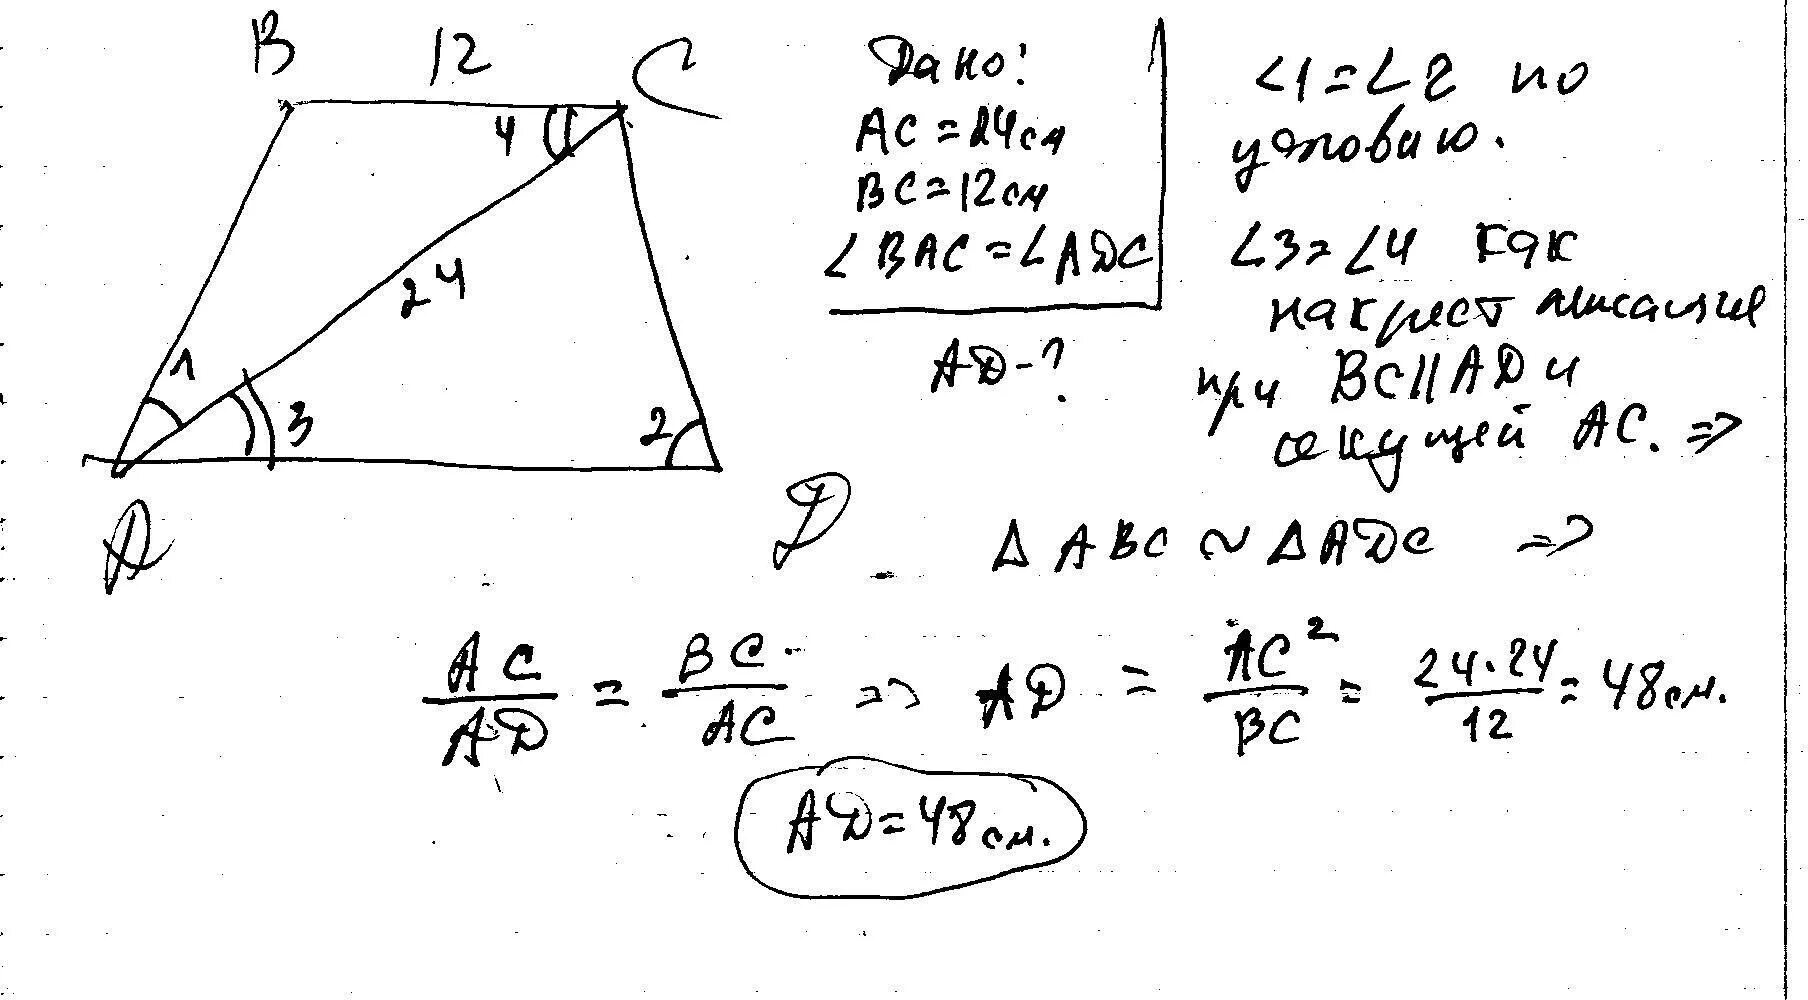 B 12 C
4
24
1
3
2
A
D
Дано:
AC = 24см
BC = 12см
∠BAC = ∠ADC
AD - ?
∠1 = ∠2 по
условию.
∠3 = ∠4 как
накрест лежащие
при BC || AD и
секущей AC. ⇒
Δ ABC ~ Δ ADC ⇒
AC/AD = BC/AC ⇒ AD = AC²/BC = 24·24/12 = 48см.
AD = 48см.